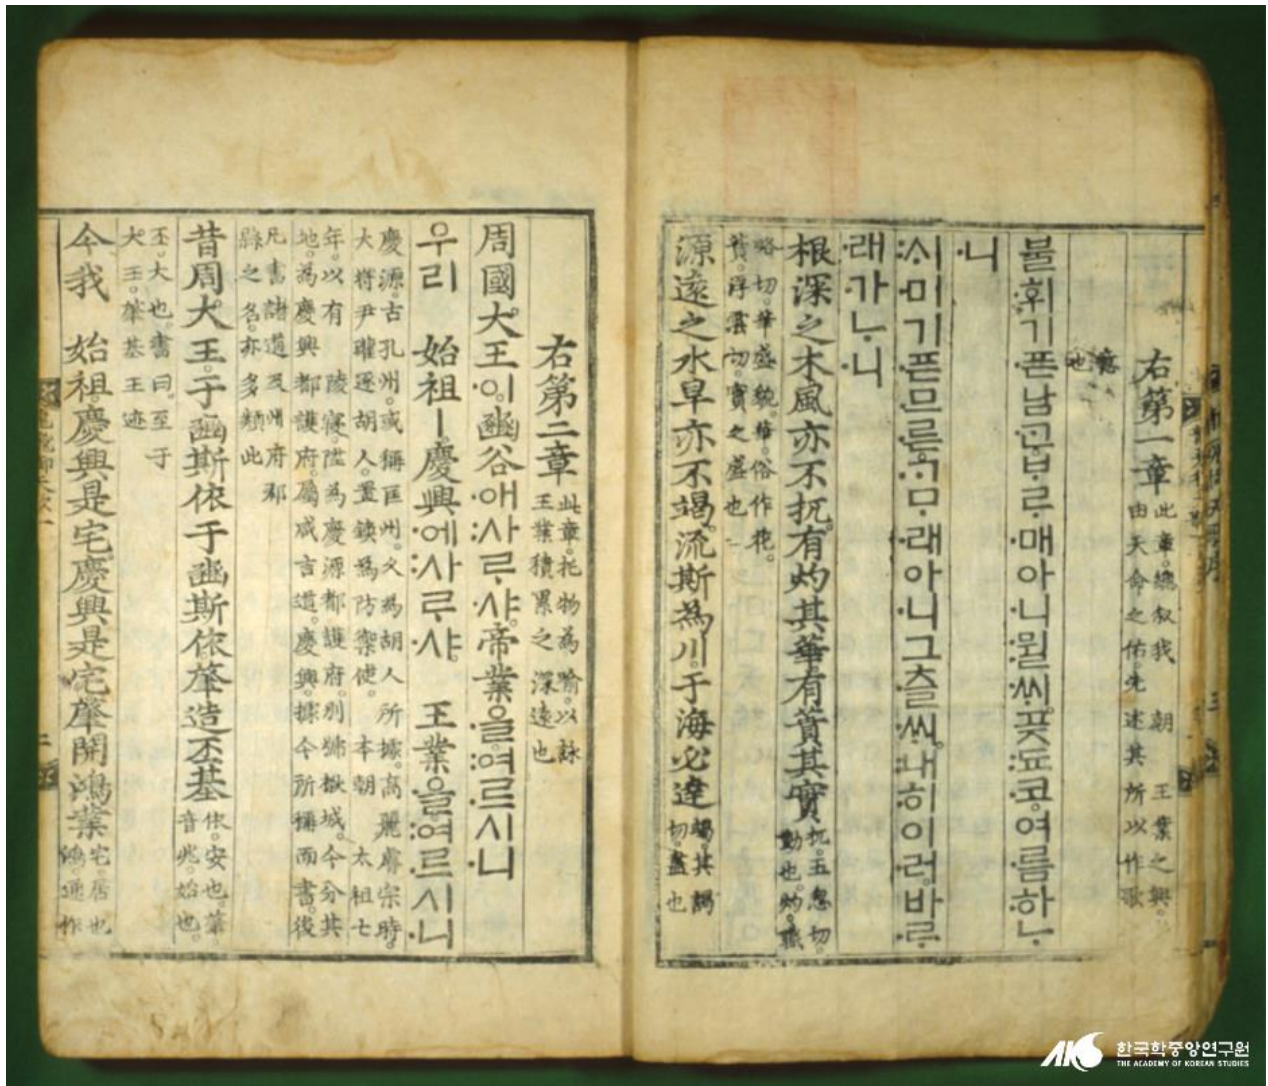 右第一章
此章。總叙我 朝 王業之興。
由天命之佑。先述其所以作歌
意
也
불휘기·픈남·ᄀᆞᆫᄇᆞᄅᆞ·매아·니:뮐·ᄊᆡ。곶:됴·코。여·름·하ᄂᆞ
·니
:ᄉᆡ·미기·픈·므·른·ᄀᆞᄆᆞ·래아·니그·츨·ᄊᆡ。:내·히이·러。바·ᄅᆞ
·래·가ᄂᆞ·니
根深之木風亦不扤。有灼其華。有蕡其實
扤。五忽切。
動也。灼。職
略切。華盛貌。華。俗作花。
蕡。浮雲切。實之盛也
源遠之水旱亦不竭。流斯爲川。于海必達
竭。其謁
切。盡也
右第二章
此章。托物爲喩。以詠
王業積累之深遠也
周國大王·이豳谷·애:사ᄅᆞ·샤。帝業·을:여·르시·니
우·리 始祖ㅣ慶興·에:사ᄅᆞ·샤。 王業·을:여·르시·니
慶源。古孔州。或稱匡州。久爲胡人所據。高麗睿宗時。
大將尹瓘逐胡人。置鎭爲防禦使。本朝 太祖七
年。以有 陵寢。陞爲慶源都護府。別號楸城。今分其
地。爲慶興都護府。屬咸吉道。慶興。據今所稱而書。後
凡書諸道及州府郡
縣之名。亦多類此
昔周大王。于豳斯依于豳斯依肇造丕基
依。安也。肇。
音兆。始也。
丕。大也。書曰。至于
大王。肇基王迹
今我 始祖。慶興是宅慶興是宅肇開鴻業
宅。居也
鴻。通作
한국학중앙연구원
THE ACADEMY OF KOREAN STUDIES